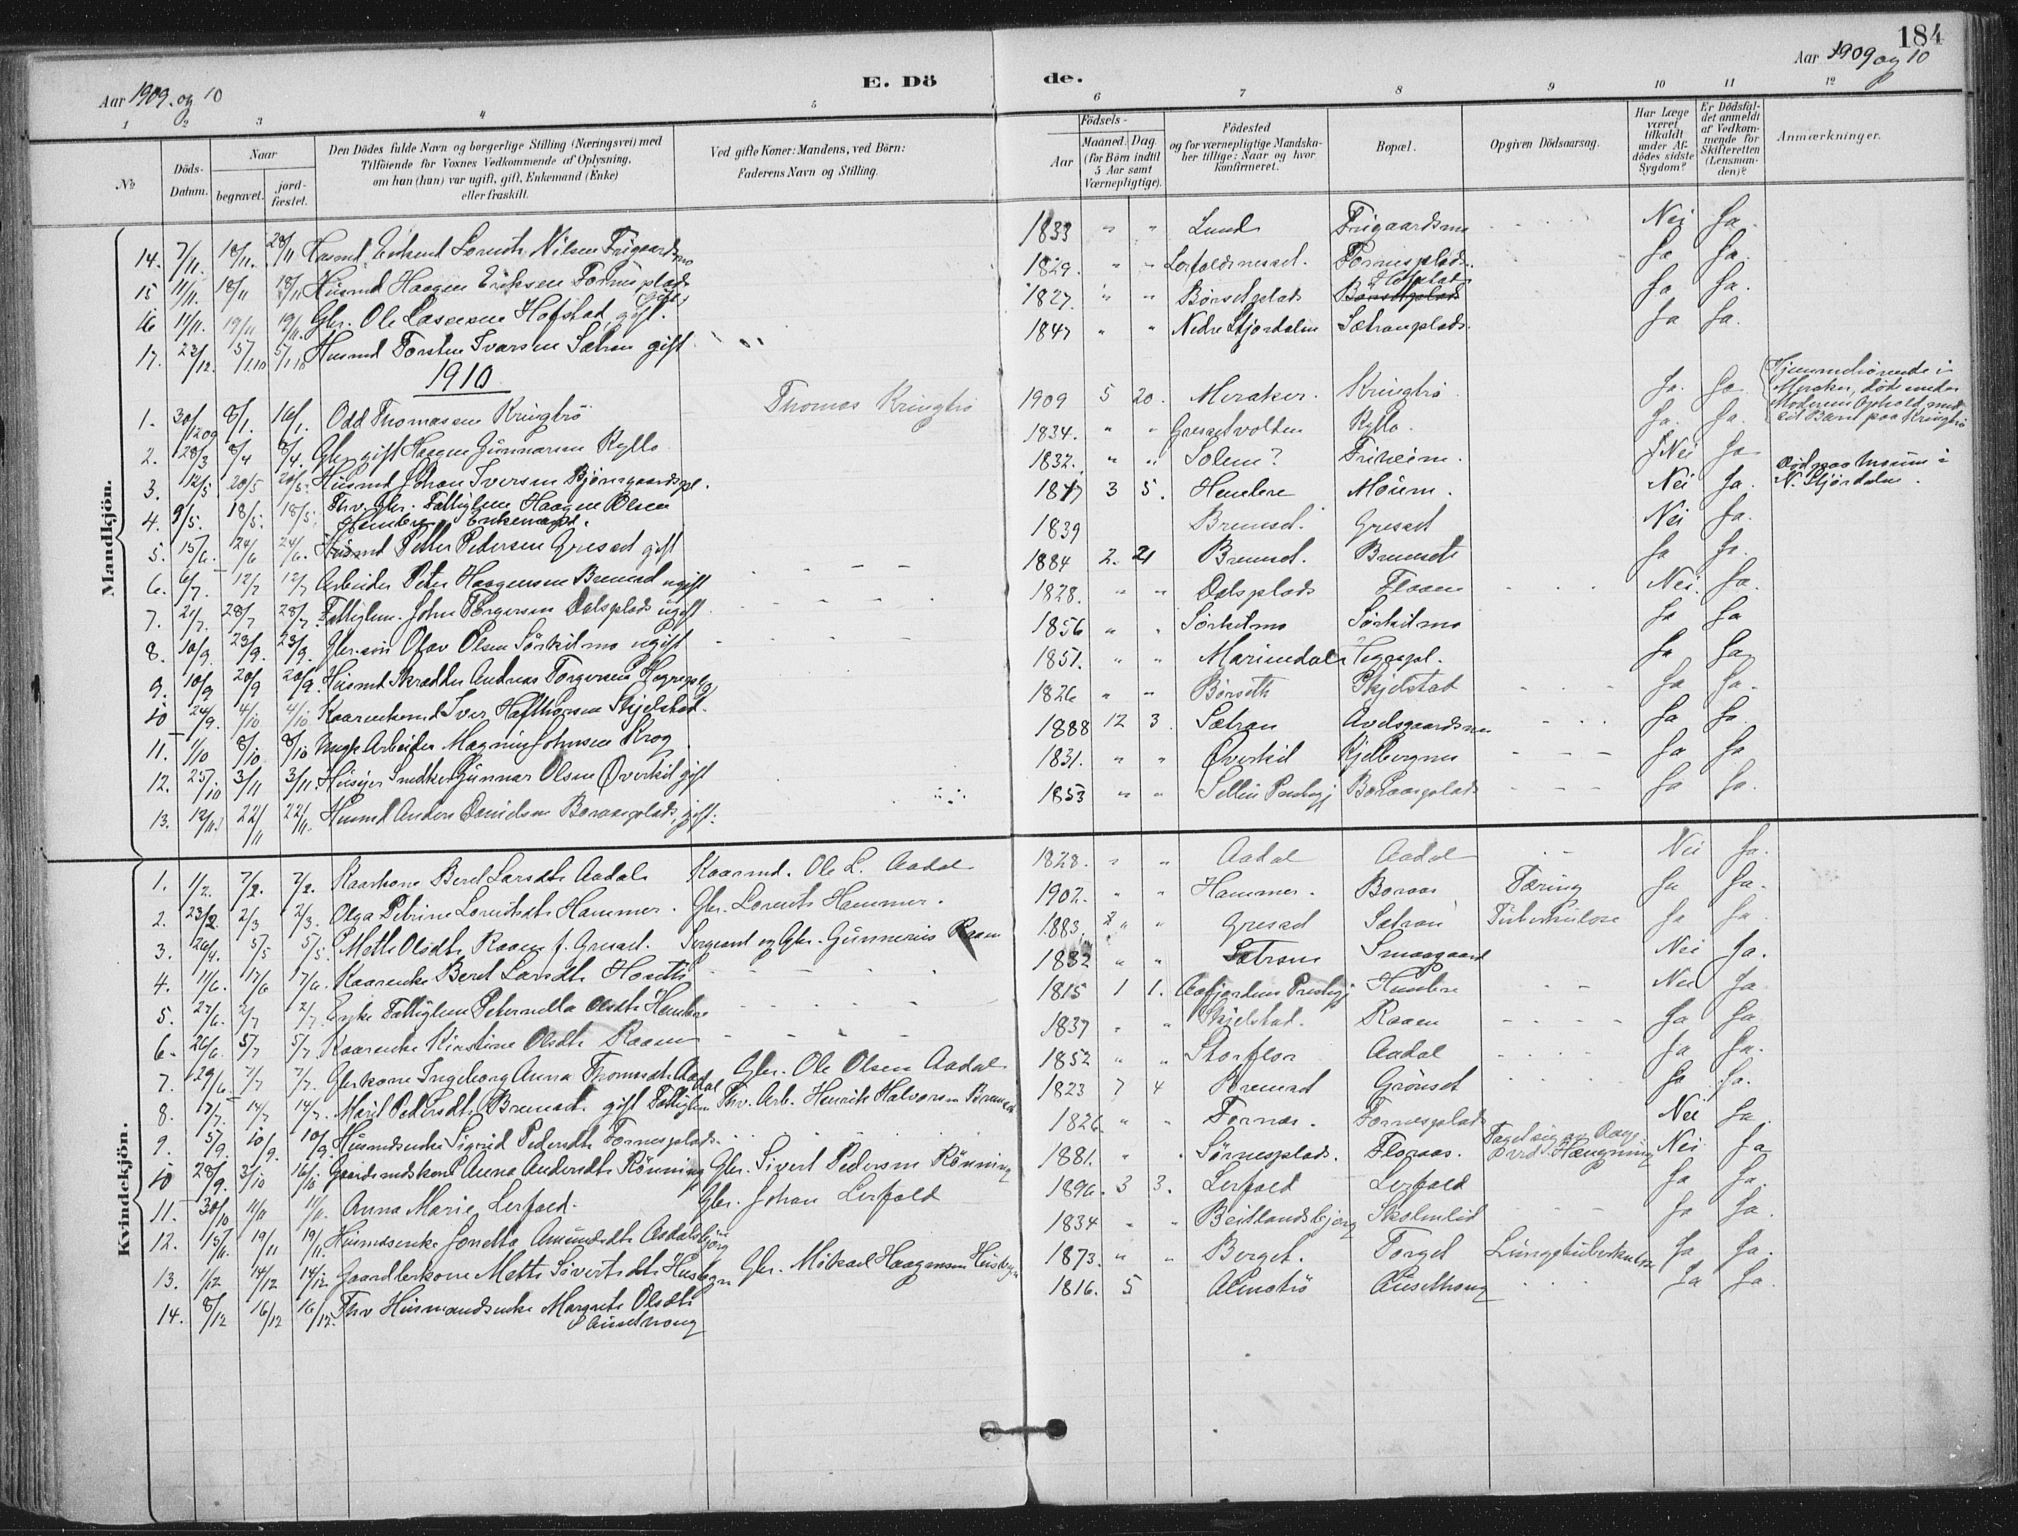 184
Aar 1909 og 10
E. Dö de.
Aar 1909 og 10
1 2 3 4 5 6 7 8 9 10 11 12
No
Döds-Datum.
Naar
begravet.
jord-fæstet.
Den Dödes fulde Navn og borgerlige Stilling (Næringsvei) med
Tilföiende for Voxnes Vedkommende af Oplysning,
om han (hun) var ugift, gift, Enkemand (Enke)
eller fraskilt.
Ved gifte Koner: Mandens, ved Börn:
Faderens Navn og Stilling.
Födsels-
Aar
Maaned. Dag.
(for Börn indtil
5 Aar samt
Værnepligtige).
Födested
og for værnepligtige Mandska-
ber tillige: Naar og hvor
konfirmeret.
Bopæl.
Opgiven Dödsaarsag.
Har Læge
været
tilkaldt
under Af-
dödes sidste
Sygdom?
Er Dödsfal-
det anmeldt
af Vedkom-
mende for
Skifteretten
(Lensman-
den)?
Anmærkninger.
Mandkjön.
14. 7/11. 18/11. 28/11 Nilsen Frigaardsmo 1833 " " Lund Frigaardsmo Nei Ja.
15 11/11. 18/11 18/11 Husmd Haagen Eriksen Fornesplads gift 1829. " " Lerfaldsnesset. Fornesplads. Ja Ja.
16 11/11. 19/11 19/11 Gbr. Ole Lassesen Hofstad, gift. 1827. " " Børsetplads Ja Ja.
17. 23/12. 5/1.10 5/1.10 Husmd Torsten Ivarsen Sætran gift 1847 " " Nedre Stjørdalen Sætranplads. Ja Ja.
1910
1. 30/1209 8/1. 16/1. Odd Thomasen Kringbrö Thomas Kringbrö 1909 5 20. Meraker. Kringbrö Ja. Ja Hjemmehörende i
Meraker, död under
Moderens Ophold med
sit Barn paa Kringbrö
2. 28/3 8/4 8/4. Gbr. gift Haagen Gunnarsen Kyllo 1834. " " Gressetvolten Kyllo. Ja. Ja.
3. 12/5 20/5 20/5. Husmd Johan Iversen Björnsgaardspl. 1832. " " Solem? Friheim. Nei Ja
4. 9/5. 18/5. 18/5. Fhv. Gbr. Fattiglem Haagen Olsen
Hembre Enkemand. 1817 3 5. Hembre Moum. Nei Ja. Död paa Moum i
N. Stjørdalen.
5. 15/6. 24/6 24/6. Husmd Petter Pedersen Gresset gift 1839 Bremset. Gresset Nei Ja.
6. 6/7. 12/7 12/7 Arbeider Peter Haagensen Bremset ugift 1884 2. 21 Bremset. Bremset Ja Ja.
7. 21/7. 28/7 28/7. Fattiglem. John Torgersen Dalsplads ugift 1828. " " Dalsplads Floan Nei. Ja.
8. 10/9. 23/9. 23/9. Olav Olsen Sörkilmo ugift 1856 " " Sörkilmo Sörkilmo Ja Ja
9. 10/9 20/9 20/9. Husmd Skrædder Andreas Torgersen 1851. " " Marienedal Ja Ja
10 24/9. 4/10 4/10 Iver Skjelstad. 1826 " " Børseth Skjelstad Ja Ja.
11. 1/10 8/10 8/10 Arbeider Magnus Johnsen Krog 1888 12 3. Sætran Avelsgaardsmo Ja Ja.
12. 25/10 3/11 3/11. Snedker Gunnar Olsen Øverkil gift 1831. " " Øverkil Kjelbergmo Ja Ja
13. 12/11. 22/11 22/11. Husmd Anders Danielsen Boraasplads, gift. 1853 " " Selbu Prestegj Boraasplads Ja Ja.
Kvindekjön.
1. 1/2. 7/2. 7/2. Kaarkone Beret Larsdtr Aadal Kaarmd. Ole L. Aadal 1828. " " Aadal Aadal Nei Ja.
2. 23/2. 2/3 2/3. Olga Petrine Lorentsdtr Hammer. Gbr. Lorents Hammer. 1902. " " Hammer. Boraas Tæring Ja Ja.
3. 26/4. 5/5 5/5. Mette Olsdtr Raaen f. Gresset. Sergeant og Gbr. Gunnerius Raaen 1883. 2 " Gresset Sætran Tuberkulose Ja Ja.
4. 11/6. 17/6 17/6. Kaarenke Beret Larsdtr 1832 " " Sætran Smaagaard Nei Ja.
5. 27/6. 2/7 2/7. Enke Fattiglem Peternella Olsdtr Hembre 1815 1 1. Aafjordens Prestegj Hembre Nei Ja
6. 26/6. 5/7 5/7. Kaarenke Kirstine Olsdtr Raaen 1837 " " Skjelstad. Raaen Ja Ja
7. 29/6 7/7 7/7. Gbrkone Ingeborg Anna Thomasdtr Aadal Gbr. Ole Olsen Aadal 1852 " " Storflor Aadal Ja Ja.
8. 17/7. 14/7 14/7. Marit Pedersdtr Bremset. gift Fattiglem Fhv. Arb. Henrik Halvorsen Bremset 1823 7 4 Bremset Grönset Ja Ja.
9. 5/9. 10/9. 10/9. Husmdsenke Sigrid Pedersdtr Fornesplads 1826. " " Fornes. Fornesplads Nei Ja.
10 28/9. 3/10 16/10 Gaardmdskone Anna Andersdtr Rönning Gbr. Sivert Pedersen Rönning 1881. " " Sörnesplads. Floraas. Taget sig av Dage
ved Hængning Nei Ja
11. 30/10 11/11 11/11. Anna Marie Lerfald. Gbr. Johan Lerfald 1896. 3 3. Lerfald Lerfald Ja Ja.
12. 15/11. 19/11 19/11. Husmdsenke Jonetta Amundsdtr 1834 " " Skolmlid Ja Ja.
13. 1/12 14/12 14/12 Gaardbrkone Mette Sivertsdtr Husbyn Gbr. Mikael Haagensen Husbyn 1873. " " Berget. Torget Lungetuberkulose Ja Ja.
14. 8/12 16/12 16/12. Fhv Husmandsenke Margrete Olsdtr 1816. 5 Almobrö Ja Ja